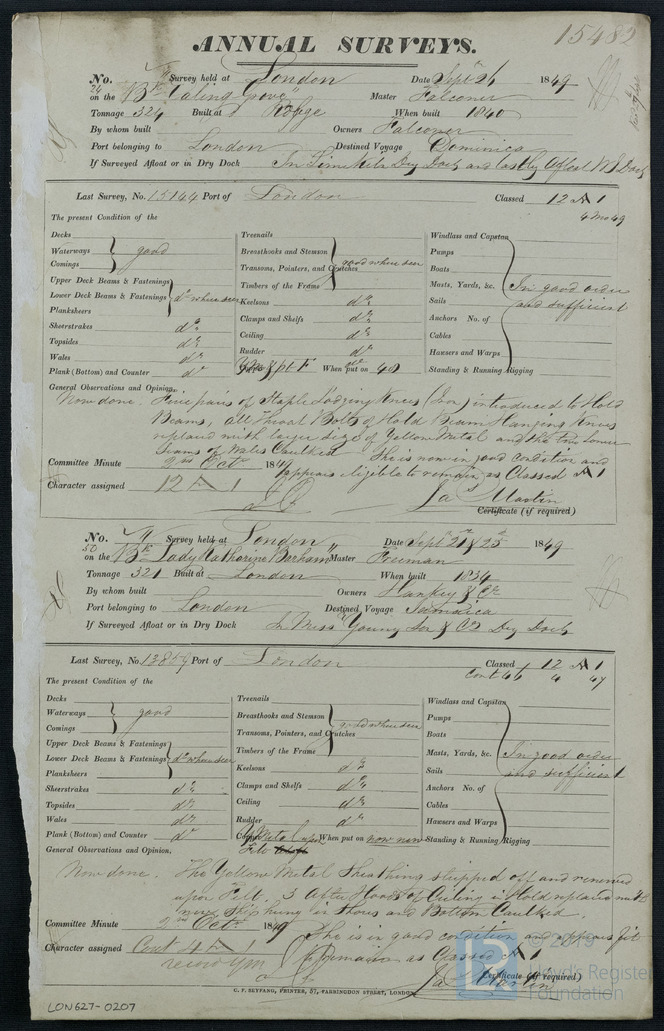 15482
ANNUAL SURVEYS.
No. Survey held at London Date Sept 24 1849
24
on the Bk "Ealing Grove" Master Falconer
Tonnage 324 Built at Rouge When built 1840
By whom built Owners Falconer
Port belonging to London Destined Voyage Dominica
If Surveyed Afloat or in Dry Dock In Limekiln Dry Dock and lastly Afloat W I Dock
Last Survey, No. 15144 Port of London Classed 12 A 1
4 Mo 49
The present Condition of the
Decks Treenails Windlass and Capstan
Waterways good Breasthooks and Stemson good where seen Pumps
Comings Transoms, Pointers, and Crutches Boats
Upper Deck Beams & Fastenings Timbers of the Frame Masts, Yards, &c. In good order
Lower Deck Beams & Fastenings do where seen Keelsons do Sails and sufficient
Planksheers Clamps and Shelfs do Anchors No. of
Sheerstrakes do Ceiling do Cables
Topsides do Rudder do Hawsers and Warps
Wales do Copper When put on 48 Standing & Running Rigging
Plank (Bottom) and Counter do
General Observations and Opinion.
Now done. Five pairs of Staple Lodging Knees (Iron) introduced to Hold
Beams, all Throat Bolts of Hold Beam Hanging Knees
replaced with larger size of Yellow Metal and the two lower
Seams of Wales Caulked. She is now in good condition and
appears eligible to remain as Classed A 1
Committee Minute 2nd Octr 1849
Character assigned 12 A 1
Jas Martin
Certificate (if required)
No. Survey held at London Date Septr 21 & 25 1849
50
on the Bk "Lady Katharine Barham" Master Freeman
Tonnage 321 Built at London When built 1834
By whom built Owners Hankey & Co
Port belonging to London Destined Voyage Jamaica
If Surveyed Afloat or in Dry Dock In Miss Young Son & Co Dry Dock
Last Survey, No. 13859 Port of London Classed 12 A 1
Cont 46 4 47
The present Condition of the
Decks Treenails Windlass and Capstan
Waterways good Breasthooks and Stemson good where seen Pumps
Comings Transoms, Pointers, and Crutches Boats
Upper Deck Beams & Fastenings Timbers of the Frame Masts, Yards, &c. In good order
Lower Deck Beams & Fastenings do where seen Keelsons do Sails and sufficient
Planksheers Clamps and Shelfs do Anchors No. of
Sheerstrakes do Ceiling do Cables
Topsides do Rudder do Hawsers and Warps
Wales do Copper Y Metal upon When put on now new Standing & Running Rigging
Plank (Bottom) and Counter do Felt
General Observations and Opinion,
Now done. The Yellow Metal Sheathing stripped off and renewed
upon Felt. 3 After Hoods of Ceiling in Hold replaced with
new. Ship hung in Shores and Bottom Caulked.
She is in good condition and appears fit
to remain as Classed A 1
Committee Minute 2nd Octr 1849
Character assigned Cont 4 A 1
Jas Martin
Certificate (if required)
C. F. SEYFANG, PRINTER, 57, FARRINGDON STREET, LONDON
LON627-0207
© 2019
Lloyd's Register
Foundation